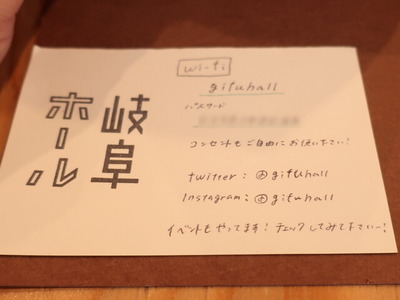 岐阜
ホール
wi-fi
gifuhall
パスワード
コンセントもご自由にお使い下さい!
twitter: @gifuhall
Instagram: @gifuhall
イベントもやってます!チェックしてみて下さいー!